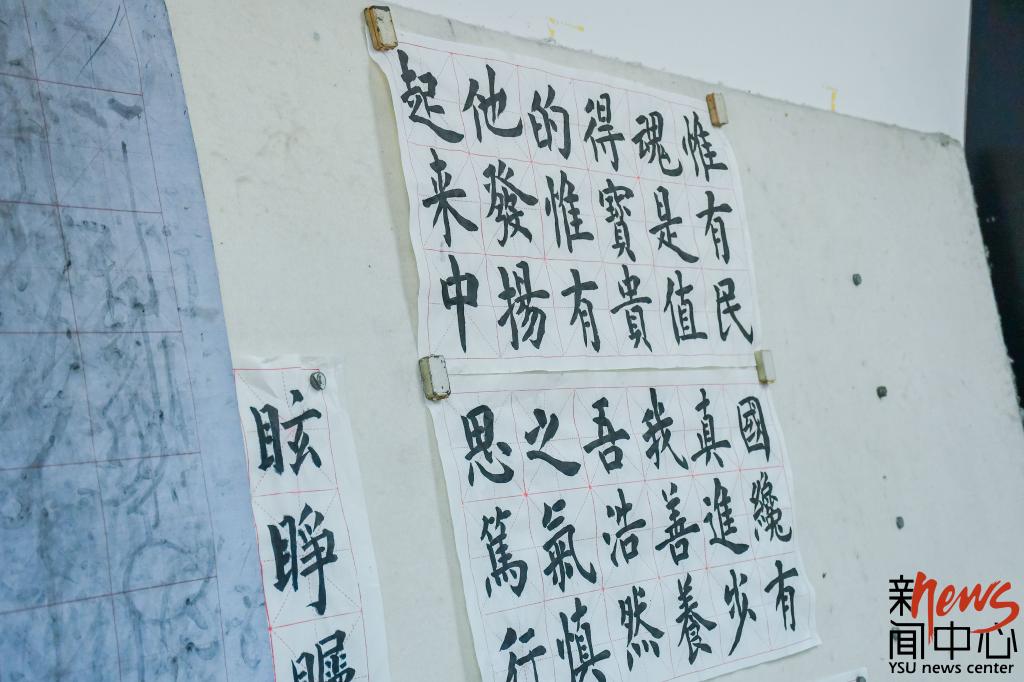 惟有民
魂是值
得寶貴
的惟有
他發揚
起来中
國纔有
真進步
我善養
吾浩然
之氣慎
思篤行
眩睁
新闻中心
news
YSU news center